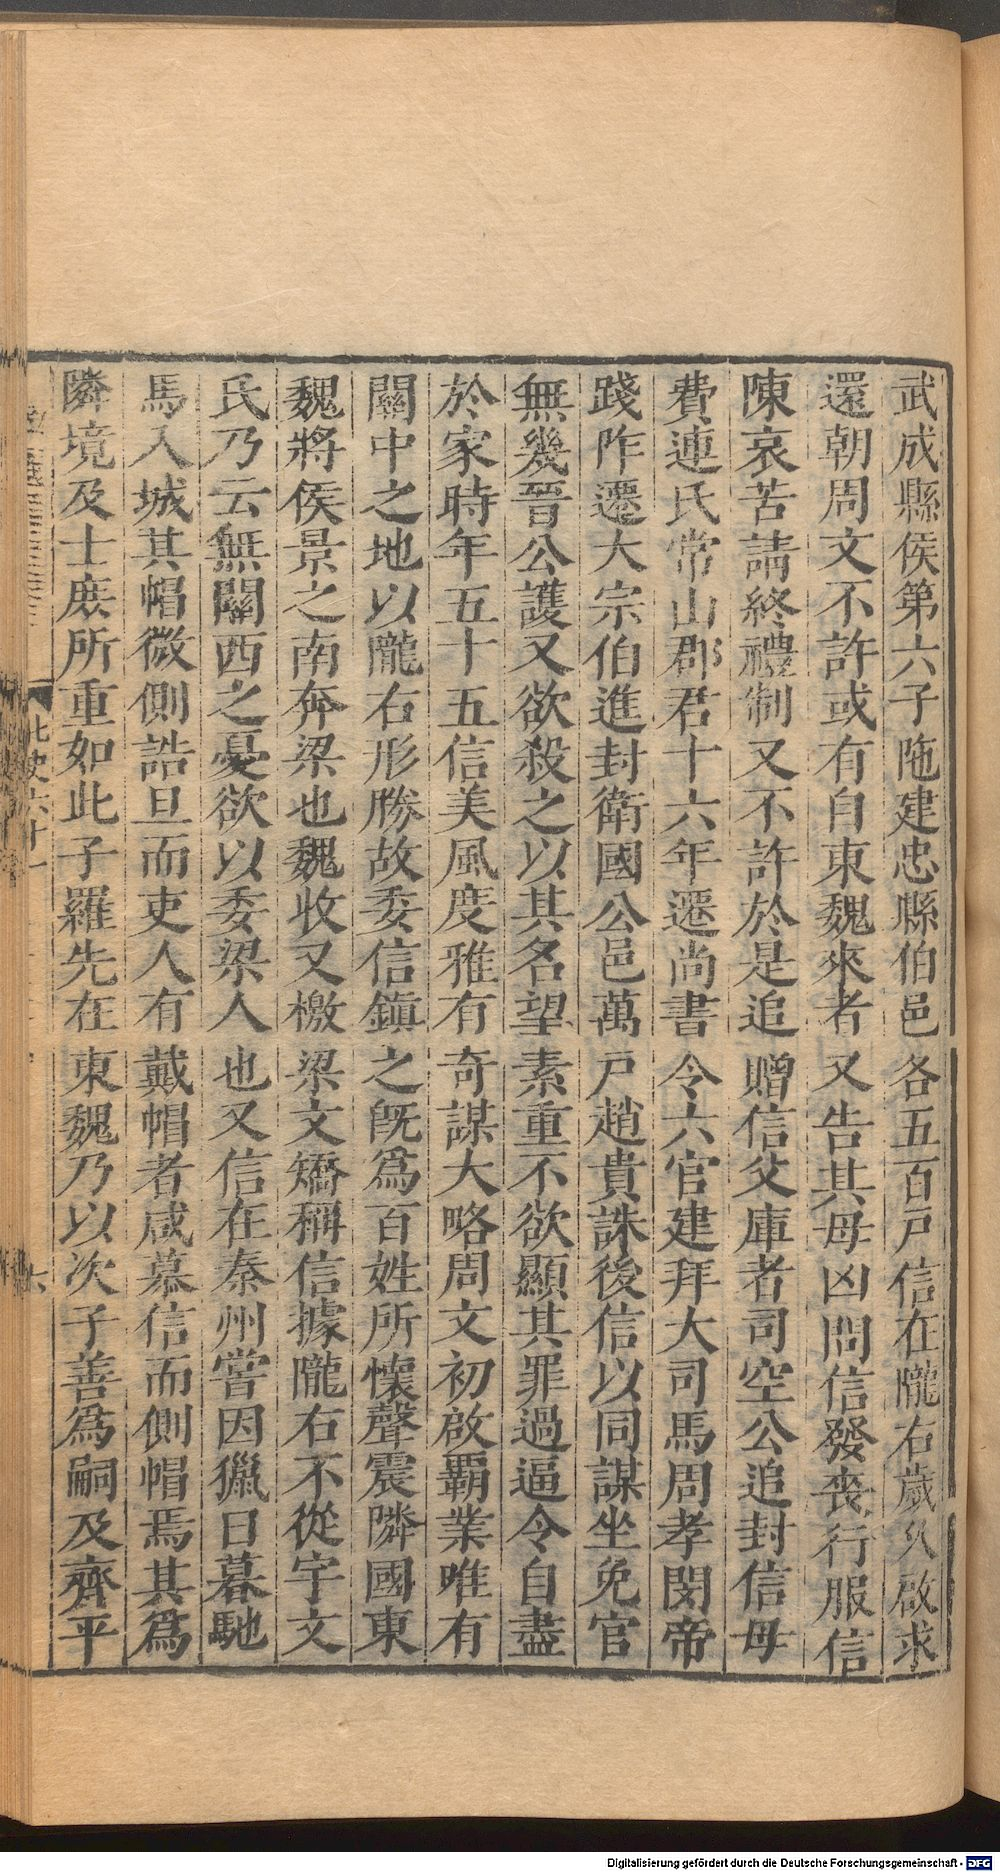 武成縣侯第六子陁建忠縣伯邑各五百戸信在隴右歲久啟求
還朝周文不許或有自東魏來者又告其母凶問信發喪行服信
陳哀苦請終禮制又不許於是追贈信父庫者司空公追封信母
費連氏常山郡君十六年遷尚書令六官建拜大司馬周孝閔帝
踐阼遷大宗伯進封衛國公邑萬戸趙貴誅後信以同謀坐免官
無幾晉公護又欲殺之以其名望素重不欲顯其罪過逼令自盡
於家時年五十五信美風度雅有奇謀大略周文初啟覇業唯有
關中之地以隴右形勝故委信鎮之旣爲百姓所懷聲震隣國東
魏將侯景之南奔梁也魏收又檄梁文矯稱信據隴右不從宇文
氏乃云無關西之憂欲以委梁人也又信在秦州嘗因獵日暮馳
馬入城其帽微側詰旦而吏人有戴帽者咸慕信而側帽焉其爲
隣境及士庶所重如此子羅先在東魏乃以次子善爲嗣及齊平
北史六十一
Digitalisierung gefördert durch die Deutsche Forschungsgemeinschaft - DFG